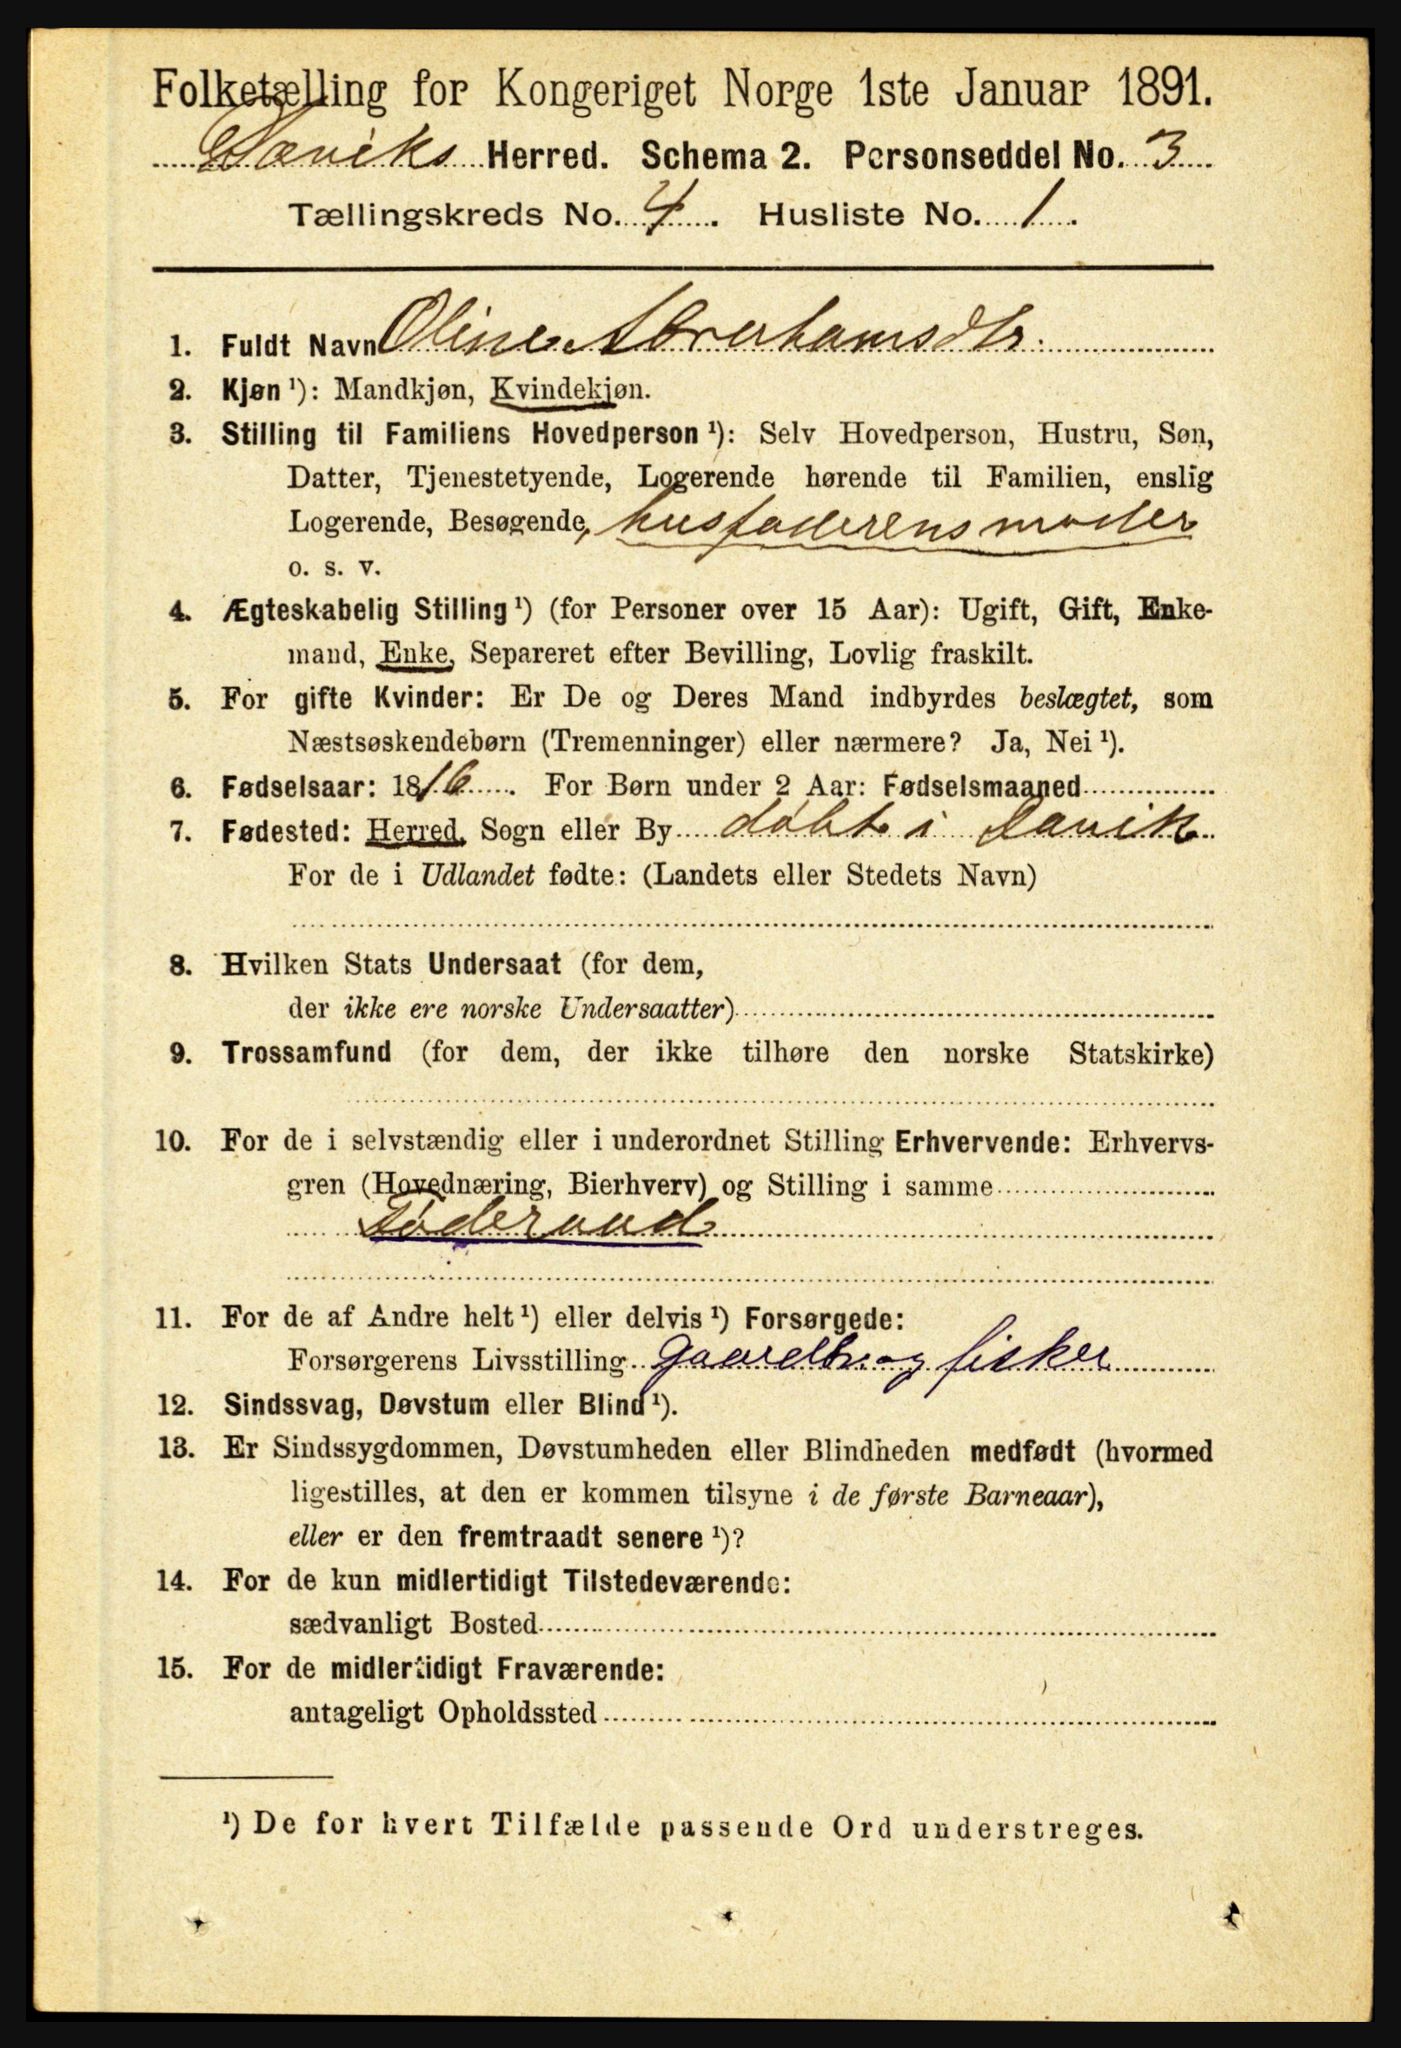 Folketælling for Kongeriget Norge 1ste Januar 1891.
Daviks Herred. Schema 2. Personseddel No. 3
Tællingskreds No. 4. Husliste No. 1.
1. Fuldt Navn Oline Abrahamsdtr.
2. Kjøn ¹): Mandkjøn, Kvindekjøn.
3. Stilling til Familiens Hovedperson ¹): Selv Hovedperson, Hustru, Søn,
Datter, Tjenestetyende, Logerende hørende til Familien, enslig
Logerende, Besøgende, husfaderens moder
o. s. v.
4. Ægteskabelig Stilling ¹) (for Personer over 15 Aar): Ugift, Gift, Enke-
mand, Enke, Separeret efter Bevilling, Lovlig fraskilt.
5. For gifte Kvinder: Er De og Deres Mand indbyrdes beslægtet, som
Næstsøskendebørn (Tremenninger) eller nærmere? Ja, Nei ¹).
6. Fødselsaar: 1816. For Børn under 2 Aar: Fødselsmaaned
7. Fødested: Herred, Sogn eller By døbt i Davik
For de i Udlandet fødte: (Landets eller Stedets Navn)
8. Hvilken Stats Undersaat (for dem,
der ikke ere norske Undersaatter)
9. Trossamfund (for dem, der ikke tilhøre den norske Statskirke)
10. For de i selvstændig eller i underordnet Stilling Erhvervende: Erhvervs-
gren (Hovednæring, Bierhverv) og Stilling i samme
Føderaad
11. For de af Andre helt ¹) eller delvis ¹) Forsørgede:
Forsørgerens Livsstilling gaardbr. og fisker
12. Sindssvag, Døvstum eller Blind ¹).
13. Er Sindssygdommen, Døvstumheden eller Blindheden medfødt (hvormed
ligestilles, at den er kommen tilsyne i de første Barneaar),
eller er den fremtraadt senere ¹)?
14. For de kun midlertidigt Tilstedeværende:
sædvanligt Bosted
15. For de midlertidigt Fraværende:
antageligt Opholdssted
¹) De for hvert Tilfælde passende Ord understreges.